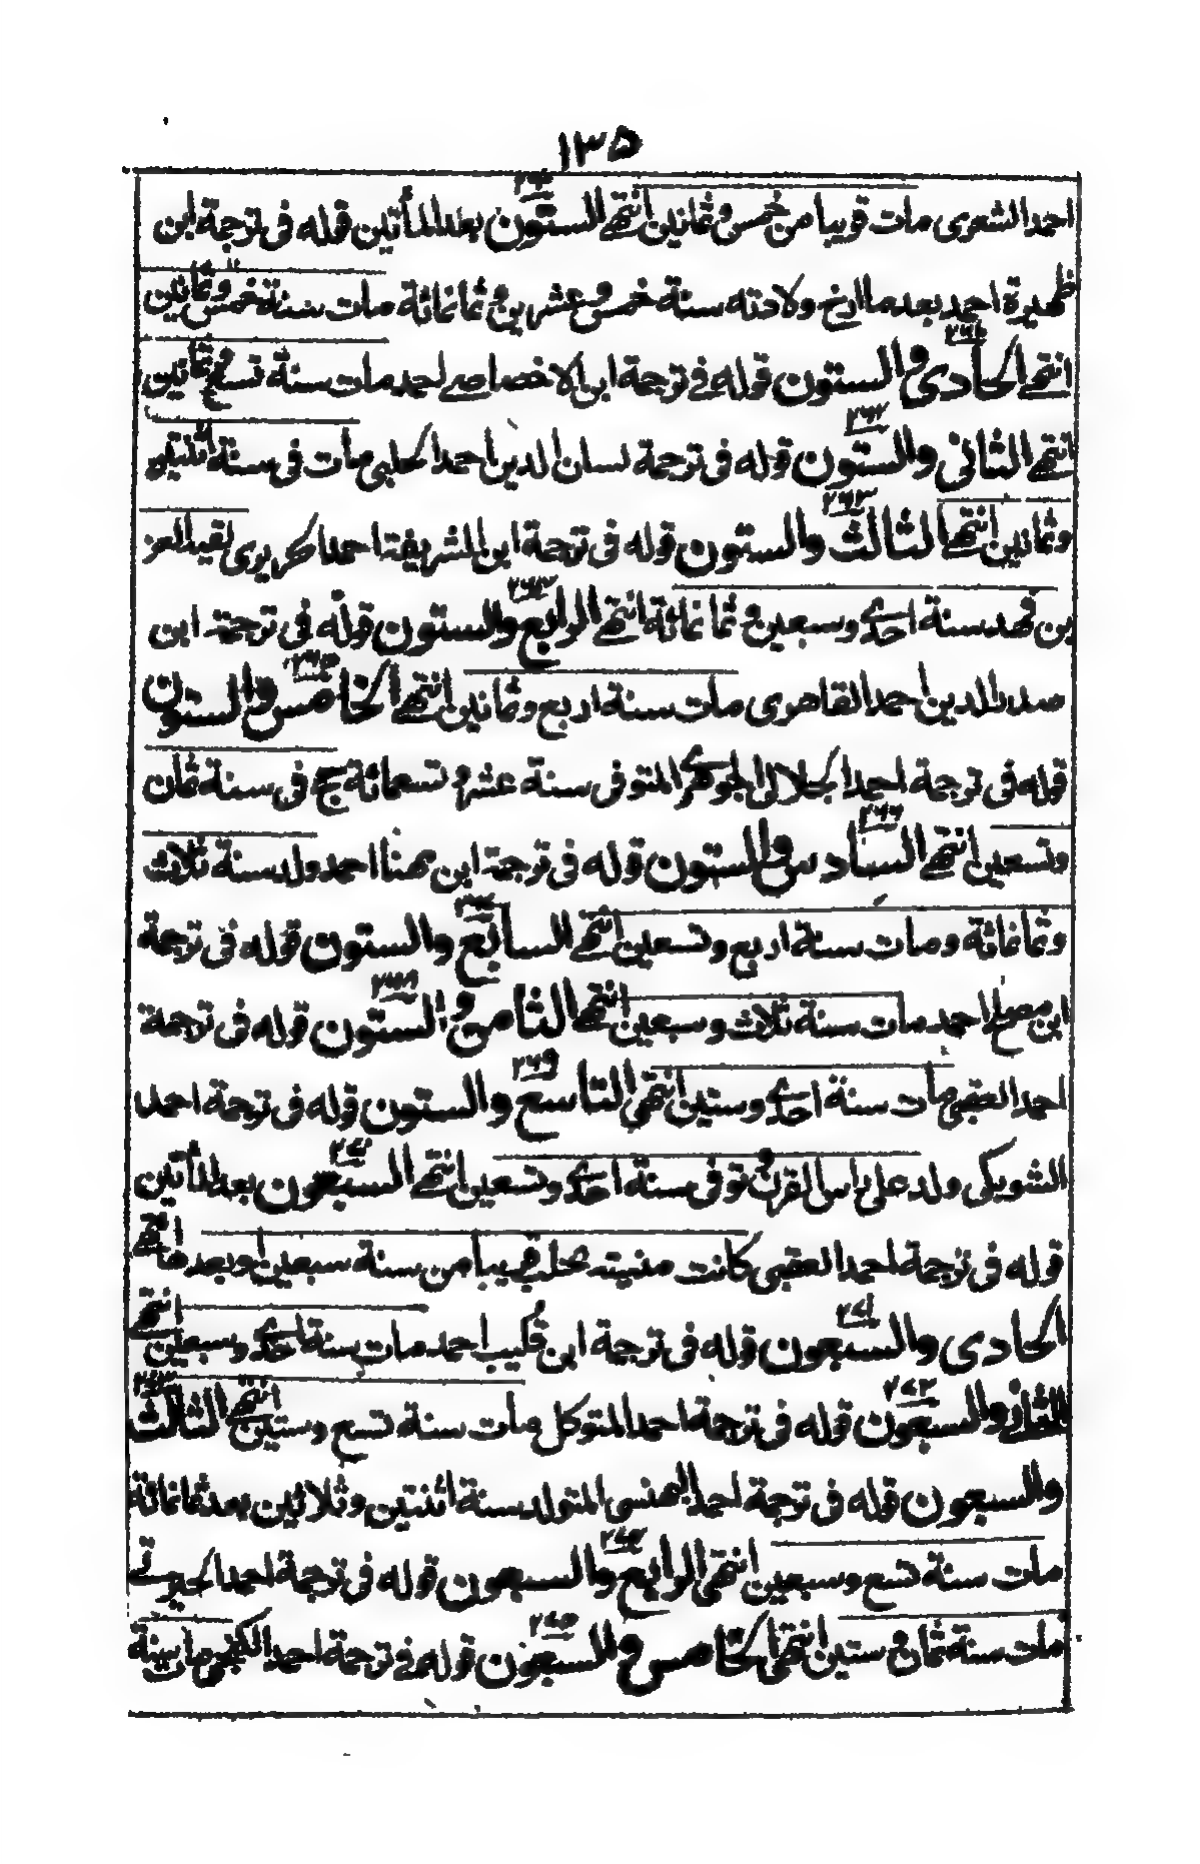 ١٣٥
احمد الشعرى مات قريبا من خمس وثمانين انتهى الستون بعد المأتين قوله فى ترجمة ابن
ظهيرة احمد بعد ما ارخ ولادته سنة خمس وعشرين وثمانمائة مات سنة خمس وثمانين
انتهى الحادى والستون قوله فى ترجمة ابن الاخصاصى احمد مات سنة تسع وثمانين
انتهى الثانى والستون قوله فى ترجمة لسان الدين احمد الحلبى مات فى سنة اثنتين
وثمانين انتهى الثالث والستون قوله فى ترجمة ابن الشريفة احمد لقيه العز
بن فهد سنة احدى وسبعين وثمانمائة انتهى الرابع والستون قوله فى ترجمة ابن
صدر الدين احمد القاهرى مات سنة اربع وثمانين انتهى الخامس والستون
قوله فى ترجمة احمد الجلالى الجوهرى المتوفى سنة عشر وتسعمائة حج فى سنة ثمان
وتسعين انتهى السادس والستون قوله فى ترجمة ابن مهنا احمد ولد سنة ثلاث
وثمانمائة ومات سنة اربع وتسعين انتهى السابع والستون قوله فى ترجمة
ابن مصلح احمد مات سنة ثلاث وسبعين انتهى الثامن والستون قوله فى ترجمة
احمد العقبى مات سنة احدى وستين انتهى التاسع والستون قوله فى ترجمة احمد
الشوبكى ولد على راس القرن توفى سنة احدى وتسعين انتهى السبعون بعد المأتين
قوله فى ترجمة احمد العقبى كانت منيته بحلب قريبا من سنة سبعين وبعدها انتهى
الحادى والسبعون قوله فى ترجمة ابن قليب احمد مات سنة احدى وسبعين انتهى
الثانى والسبعون قوله فى ترجمة احمد المتوكل مات سنة تسع وستين انتهى الثالث
والسبعون قوله فى ترجمة احمد البهنسى المتولد سنة اثنتين وثلاثين بعد ثمانمائة
مات سنة تسع وسبعين انتهى الرابع والسبعون قوله فى ترجمة احمد
مات سنة ثمان وستين انتهى الخامس والسبعون قوله فى ترجمة احمد مات سنة